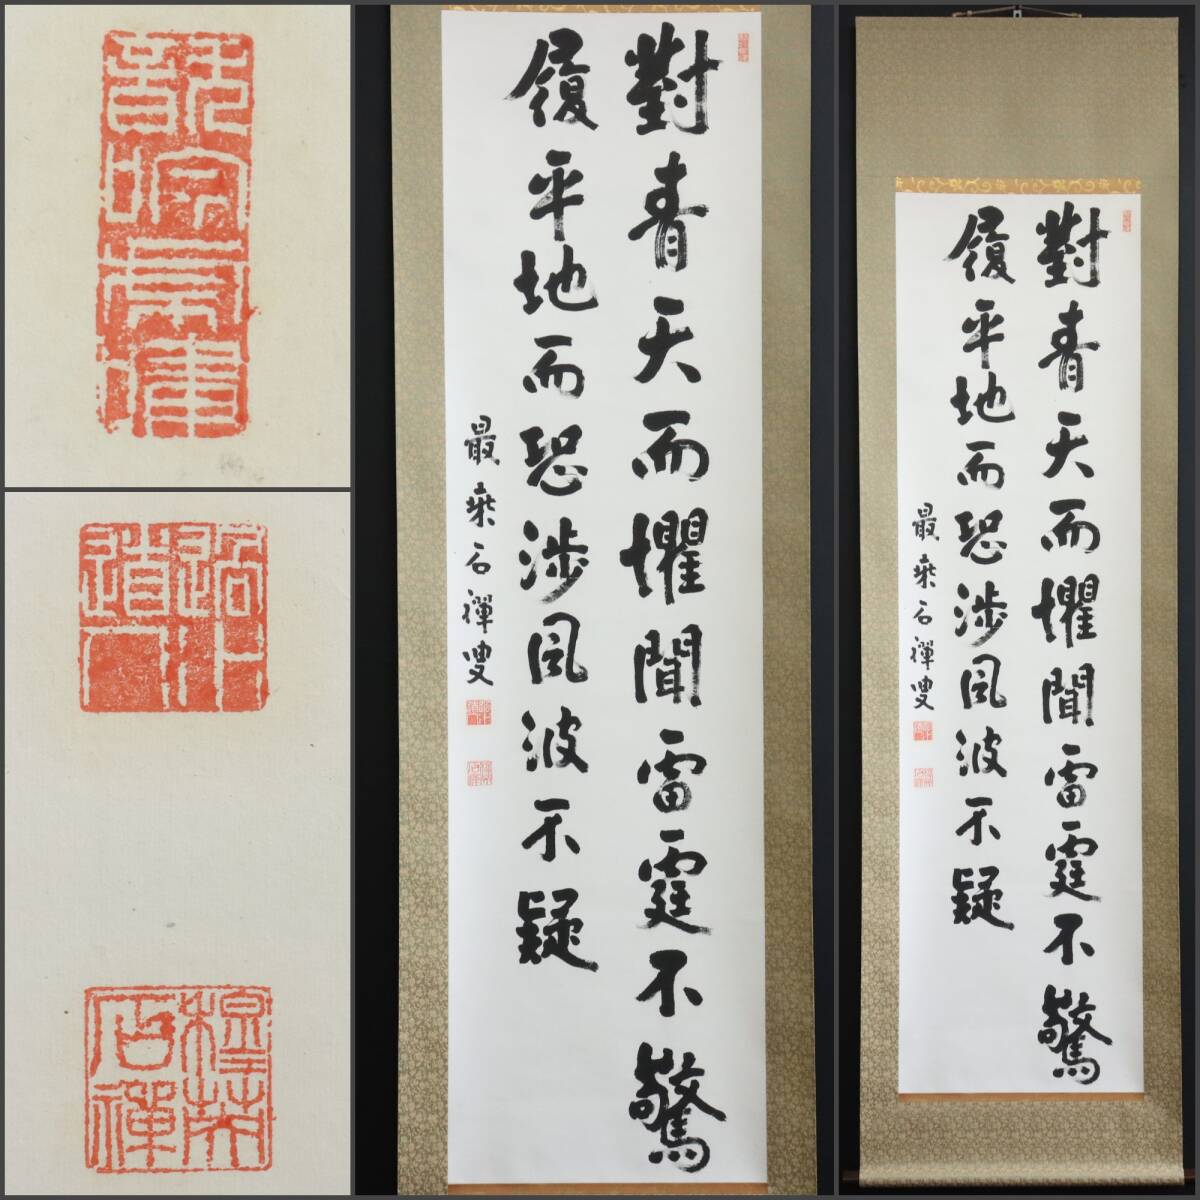 對青天而懼聞雷霆不驚
履平地而恐涉風波不疑
最乗石禅叟
對青天而懼聞雷霆不驚
履平地而恐涉風波不疑
最乗石禅叟